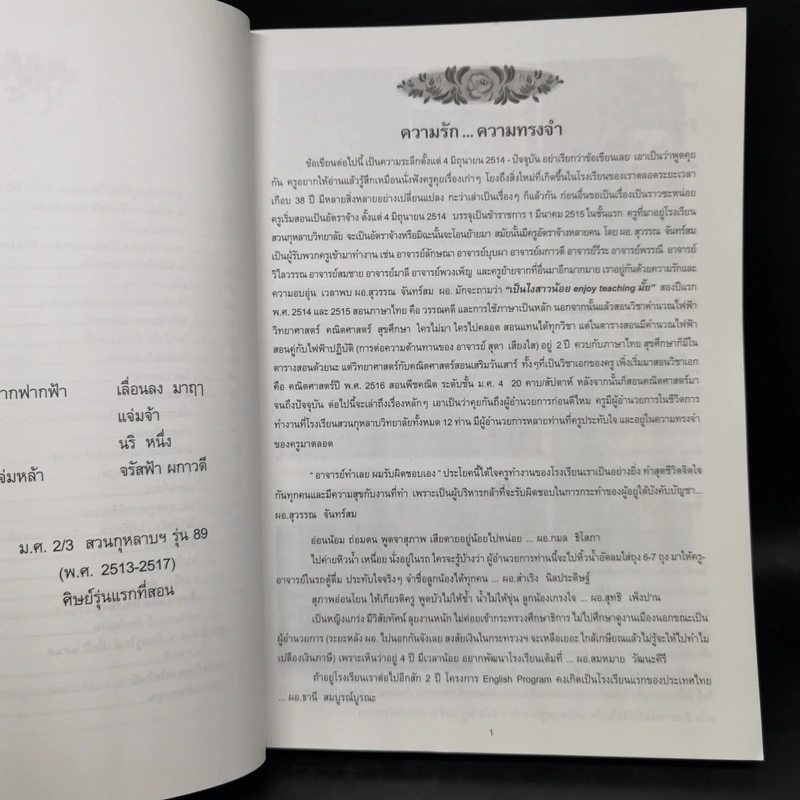 ากฟากฟ้า เลื่อนลง มาฤๅ
แจ่มจ้า
นริ หนึ่ง
จ่มหล้า จรัสฟ้า ผกาวดี
ม.ศ. 2/3 สวนกุหลาบฯ รุ่น 89
(พ.ศ. 2513-2517)
ศิษย์รุ่นแรกที่สอน
ความรัก ... ความทรงจำ
ข้อเขียนต่อไปนี้ เป็นความระลึกตั้งแต่ 4 มิถุนายน 2514 - ปัจจุบัน อย่าเรียกว่าข้อเขียนเลย เอาเป็นว่าพูดคุย
กัน ครูอยากให้อ่านแล้วรู้สึกเหมือนนั่งฟังครูคุยเรื่องเก่าๆ โยงถึงสิ่งใหม่ที่เกิดขึ้นในโรงเรียนของเราตลอดระยะเวลา
เกือบ 38 ปี มีหลายสิ่งหลายอย่างเปลี่ยนแปลง กะว่าเล่าเป็นเรื่องๆ ก็แล้วกัน ก่อนอื่นขอเป็นเรื่องเป็นราวซะหน่อย
ครูเริ่มสอนเป็นอัตราจ้าง ตั้งแต่ 4 มิถุนายน 2514 บรรจุเป็นข้าราชการ 1 มีนาคม 2515 ในชั้นแรก ครูที่มาอยู่โรงเรียน
สวนกุหลาบวิทยาลัย จะเป็นอัตราจ้างหรือมิฉะนั้นจะโอนย้ายมา สมัยนั้นมีครูอัตราจ้างหลายคน โดย ผอ. สุวรรณ จันทร์สม
เป็นผู้รับพวกครูเข้ามาทำงาน เช่น อาจารย์ลักษณา อาจารย์บุบผา อาจารย์ผกาวดี อาจารย์วีระ อาจารย์พรรณี อาจารย์
วิไลวรรณ อาจารย์สมชาย อาจารย์มาลี อาจารย์พวงเพ็ญ และครูย้ายจากที่อื่นมาอีกมากมาย เราอยู่กันด้วยความรักและ
ความอบอุ่น เวลาพบ ผอ.สุวรรณ จันทร์สม ผอ. มักจะถามว่า “เป็นไงสาวน้อย enjoy teaching มั้ย” สองปีแรก
พ.ศ. 2514 และ 2515 สอนภาษาไทย คือ วรรณคดี และการใช้ภาษาเป็นหลัก นอกจากนั้นแล้วสอนวิชาคำนวณไฟฟ้า
วิทยาศาสตร์ คณิตศาสตร์ สุขศึกษา ใครไม่มา ใครไปคลอด สอนแทนได้ทุกวิชา แต่ในตารางสอนมีคำนวณไฟฟ้า
สอนคู่กับไฟฟ้าปฏิบัติ (การต่อความต้านทานของ อาจารย์ สุดา เสียงใส) อยู่ 2 ปี ควบกับภาษาไทย สุขศึกษาก็มีใน
ตารางสอนด้วยนะ แต่วิทยาศาสตร์กับคณิตศาสตร์สอนเสริมวันเสาร์ ทั้งๆที่เป็นวิชาเอกของครู เพิ่งเริ่มมาสอนวิชาเอก
คือ คณิตศาสตร์ปี พ.ศ. 2516 สอนพีชคณิต ระดับชั้น ม.ศ. 4 20 คาบ/สัปดาห์ หลังจากนั้นก็สอนคณิตศาสตร์มา
จนถึงปัจจุบัน ต่อไปนี้จะเล่าถึงเรื่องหลักๆ เอาเป็นว่าคุยกันถึงผู้อำนวยการก่อนดีไหม ครูมีผู้อำนวยการในชีวิตการ
ทำงานที่โรงเรียนสวนกุหลาบวิทยาลัยทั้งหมด 12 ท่าน มีผู้อำนวยการหลายท่านที่ครูประทับใจ และอยู่ในความทรงจำ
ของครูมาตลอด
“ อาจารย์ทำเลย ผมรับผิดชอบเอง ” ประโยคนี้ได้ใจครูทำงานของโรงเรียนเราเป็นอย่างยิ่ง ทำสุดชีวิตจิตใจ
กันทุกคนและมีความสุขกับงานที่ทำ เพราะเป็นผู้บริหารกล้าที่จะรับผิดชอบในการกระทำของผู้อยู่ใต้บังคับบัญชา...
ผอ.สุวรรณ จันทร์สม
อ่อนน้อม ถ่อมตน พูดจาสุภาพ เสียดายอยู่น้อยไปหน่อย ... ผอ.กมล ธิโสภา
ไปค่ายหิวน้ำ เหนื่อย นั่งอยู่ในรถ ใครจะรู้บ้างว่า ผู้อำนวยการท่านนี้จะไปหิ้วน้ำอัดลมใส่ถุง 6-7 ถุง มาให้ครู-
อาจารย์ในรถตู้ดื่ม ประทับใจจริงๆ จำชื่อลูกน้องได้ทุกคน ... ผอ.สำเริง นิลประดิษฐ์
สุภาพอ่อนโยน ให้เกียรติครู พูดบัวไม่ให้ช้ำ น้ำไม่ให้ขุ่น ลูกน้องเกรงใจ ... ผอ.สุทธิ เพ็งปาน
เป็นหญิงแกร่ง มีวิสัยทัศน์ ลุยงานหนัก ไม่ค่อยเข้ากระทรวงศึกษาธิการ ไม่ไปศึกษาดูงานเมืองนอกขณะเป็น
ผู้อำนวยการ (ระยะหลัง ผอ. ไปนอกกันจังเลย สงสัยเงินในกระทรวงฯ จะเหลือเยอะ ใกล้เกษียณแล้วไม่รู้จะให้ไปทำไม
เปลืองเงินภาษี) เพราะเห็นว่าอยู่ 4 ปี มีเวลาน้อย อยากพัฒนาโรงเรียนเต็มที่ ... ผอ.สมหมาย วัฒนะคีรี
ถ้าอยู่โรงเรียนเราต่อไปอีกสัก 2 ปี โครงการ English Program คงเกิดเป็นโรงเรียนแรกของประเทศไทย
... ผอ.ธานี สมบูรณ์บูรณะ
1